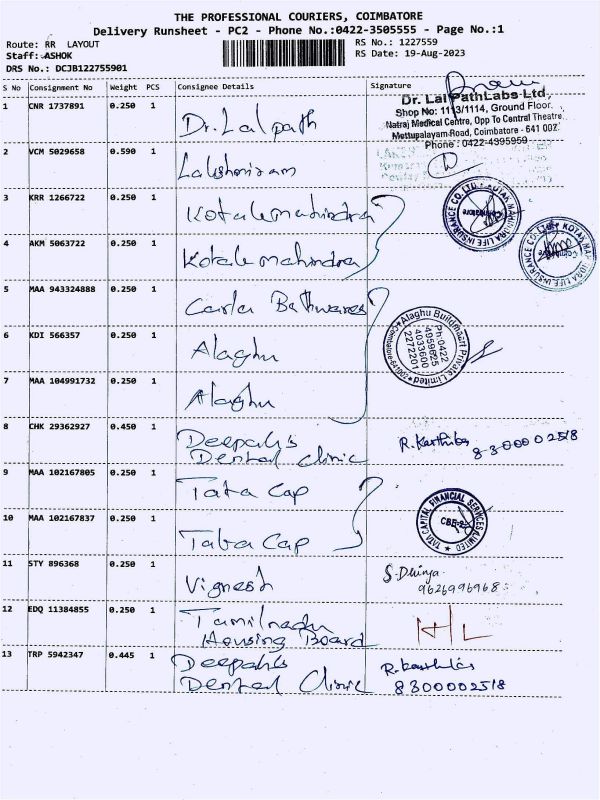 THE PROFESSIONAL COURIERS, COIMBATORE
Delivery Runsheet - PC2 - Phone No.:0422-3505555 - Page No.:1
Route: RR LAYOUT
RS No.: 1227559
Staff: ASHOK
RS Date: 19-Aug-2023
DRS No.: DCJB122755901
S No Consignment No Weight PCS Consignee Details Signature
1 CNR 1737891 0.250 1 Dr. Lal path
Dr. Lal PathLabs Ltd,
Shop No: 1113/1114, Ground Floor.
Natraj Medical Centre, Opp To Central Theatre
Mettupalayam Road, Coimbatore - 641 002.
Phone: 0422-4395959
2 VCM 5029658 0.590 1 Lakshmiram
3 KRR 1266722 0.250 1 Kotak mahindra
KOTAK MAHINDRA LIFE INSURANCE CO. LTD.
Coimbatore
4 AKM 5063722 0.250 1 Kotak mahindra
KOTAK MAHINDRA LIFE INSURANCE CO. LTD.
5 MAA 943324888 0.250 1 Carla Bathwares
Alaghu Buildmart Private Limited
Ph:0422
4959825
4033600
2272201
6 KDI 566357 0.250 1 Alaghu
7 MAA 104991732 0.250 1 Alaghu
8 CHK 29362927 0.450 1 Deepak's
Dental Clinic
R. Karthika
8300002518
9 MAA 102167805 0.250 1 Tata Cap
TATA CAPITAL FINANCIAL SERVICES LIMITED
CBE-2
10 MAA 102167837 0.250 1 Tata Cap
11 STY 896368 0.250 1 Vignesh
S. Dhivya
9626996968
12 EDQ 11384855 0.250 1 Tamilnadu
Housing Board
13 TRP 5942347 0.445 1 Deepak's
Dental Clinic
R. Karthika
8300002518